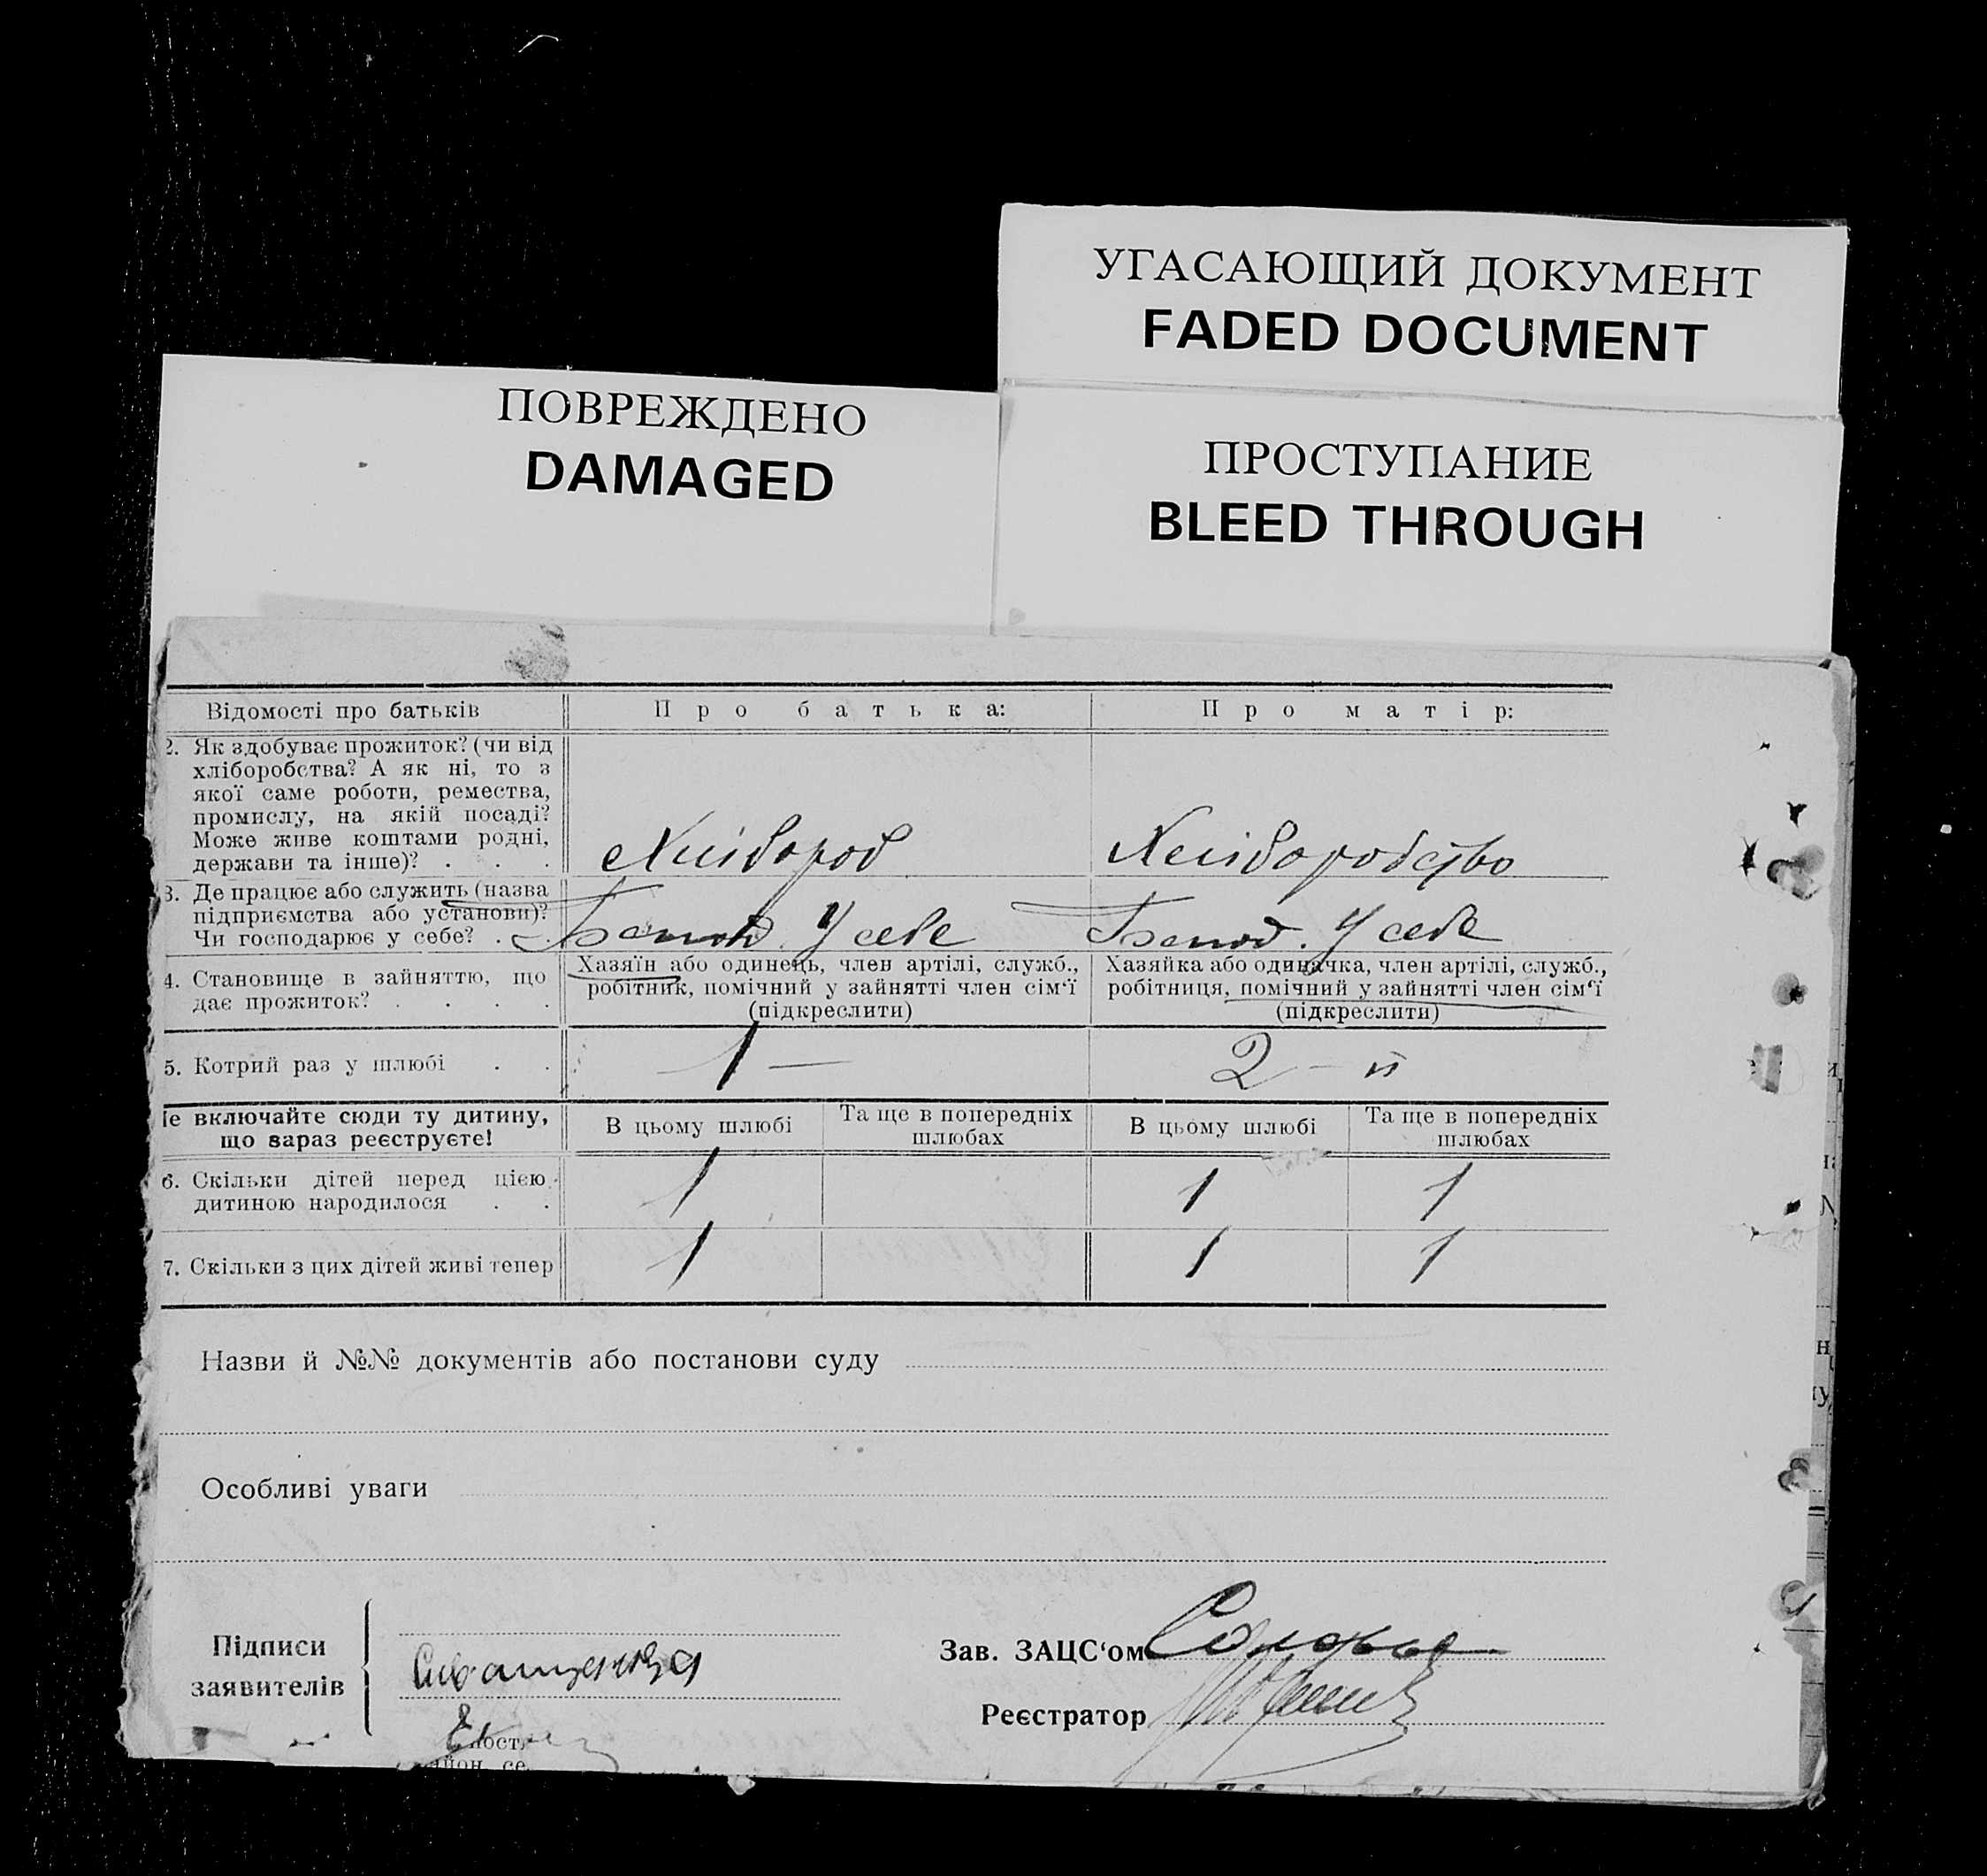 УГАСАЮЩИЙ ДОКУМЕНТ
FADED DOCUMENT
ПОВРЕЖДЕНО
DAMAGED
ПРОСТУПАНИЕ
BLEED THROUGH
Відомості про батьків
Про батька:
Про матір:
2. Як здобуває прожиток? (чи від
хліборобства? А як ні, то з
якої саме роботи, ремества,
промислу, на якій посаді?
Може живе коштами родні,
держави та інше)? . . .
Хлібороб
Хліборобство
3. Де працює або служить (назва
підприємства або установи)?
Чи господарює у себе? . .
У себе
У себе
4. Становище в зайняттю, що
дає прожиток? . . . .
Хазяїн або одинець, член артілі, служб.,
робітник, помічний у зайнятті член сім‘ї
(підкреслити)
Хазяйка або одиначка, член артілі, служб.,
робітниця, помічний у зайнятті член сім‘ї
(підкреслити)
5. Котрий раз у шлюбі . .
1 —
2 - й
Не включайте сюди ту дитину,
що зараз реєструєте!
В цьому шлюбі
Та ще в попередніх
шлюбах
В цьому шлюбі
Та ще в попередніх
шлюбах
6. Скільки дітей перед цією
дитиною народилося . .
1
1
1
7. Скільки з цих дітей живі тепер
1
1
1
Назви й №№ документів або постанови суду
Особливі уваги
Підписи
заявителів
Зав. ЗАЦС‘ом
Реєстратор